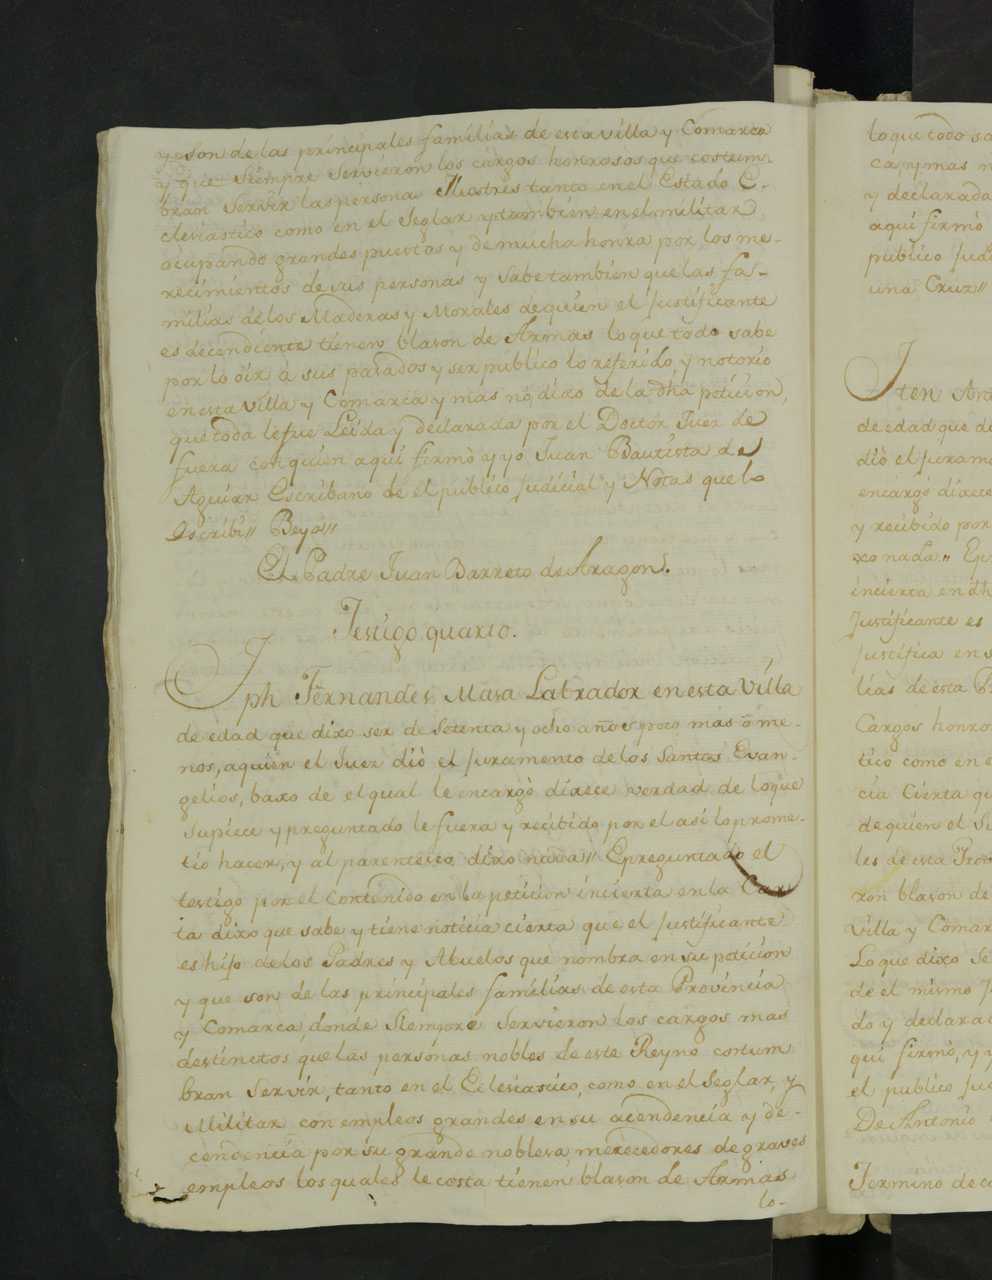 y son de las principales familias de esta Villa y Comarca
y que Siempre Servieron los cargos honrosos que costum-
bran Servir las persona Illustres tanto en el Estado E-
clesiastico como en el Seglar y tambien en el militar
ocupando grandes puestos y de mucha honra por los me-
recimientos de sus personas y Sabe tambien que las fa-
milias de los Maderas y Morales de quien el Justificante
es decendiente tienen blason de Armas lo que todo sabe
por lo oir a sus pasados y ser publico lo referido, y notorio
en esta Villa y Comarca y mas nó dixo de la dha peticion,
que toda le fue Leida y declarada por el Doctor Juez de
fuera con quien aqui firmó y yo Juan Bautista de
Aguiar Escribano de el publico Judicial y Notas que lo
Escribi // Beya //
El Padre Juan Barreto de Aragon.
Testigo quarto.
Jph Fernandes Masa Labrador en esta Villa
de edad que dixo ser de Setenta y ocho años poco mas ò me-
nos, a quien el Juez diò el Juramento de los Santos Evan-
gelios, baxo de el qual le encargò dixece verdad de loque
Supiece y preguntado le fuera y recibido por el asi lo prome-
tio hacer, y al parentesco dixo nada // E preguntado el
testigo por el Contenido en la peticion incierta en la Car-
ta dixo que sabe y tiene noticia cierta que el Justificante
es hijo de los Padres y Abuelos que nombra en su peticion
y que son de las principales familias de esta Provincia
y Comarca, donde Siempre Servieron los cargos mas
destinctos que las personas nobles de este Reyno costum
bran Servir, tanto en el Eclesiastico, como en el Seglar, y
Militar con empleos grandes en su acendencia y de-
cendencia por su grande nobleva, merecedores de graves
empleos los quales le costa tienen blason de Armas
lo-
lo que todo sa
ca y mas n
y declarada
aqui firmó
publico Judi
una Cruz //
Iten Ant
de edad que di
dió el Jurame
encargó dixece
y recibido por
xo nada // Ep
incierta en dh
Justificante es
Justifica en s
lias de esta P
Cargos honro
tico como en e
cia Cierta qu
de quien el Su
les de esta Prov
ron blason de
Villa y Comar
Lo que dixo Se
de el mismo J
do y declarad
qui firmó, y y
el publico Jud
De Antonio
Termino de c